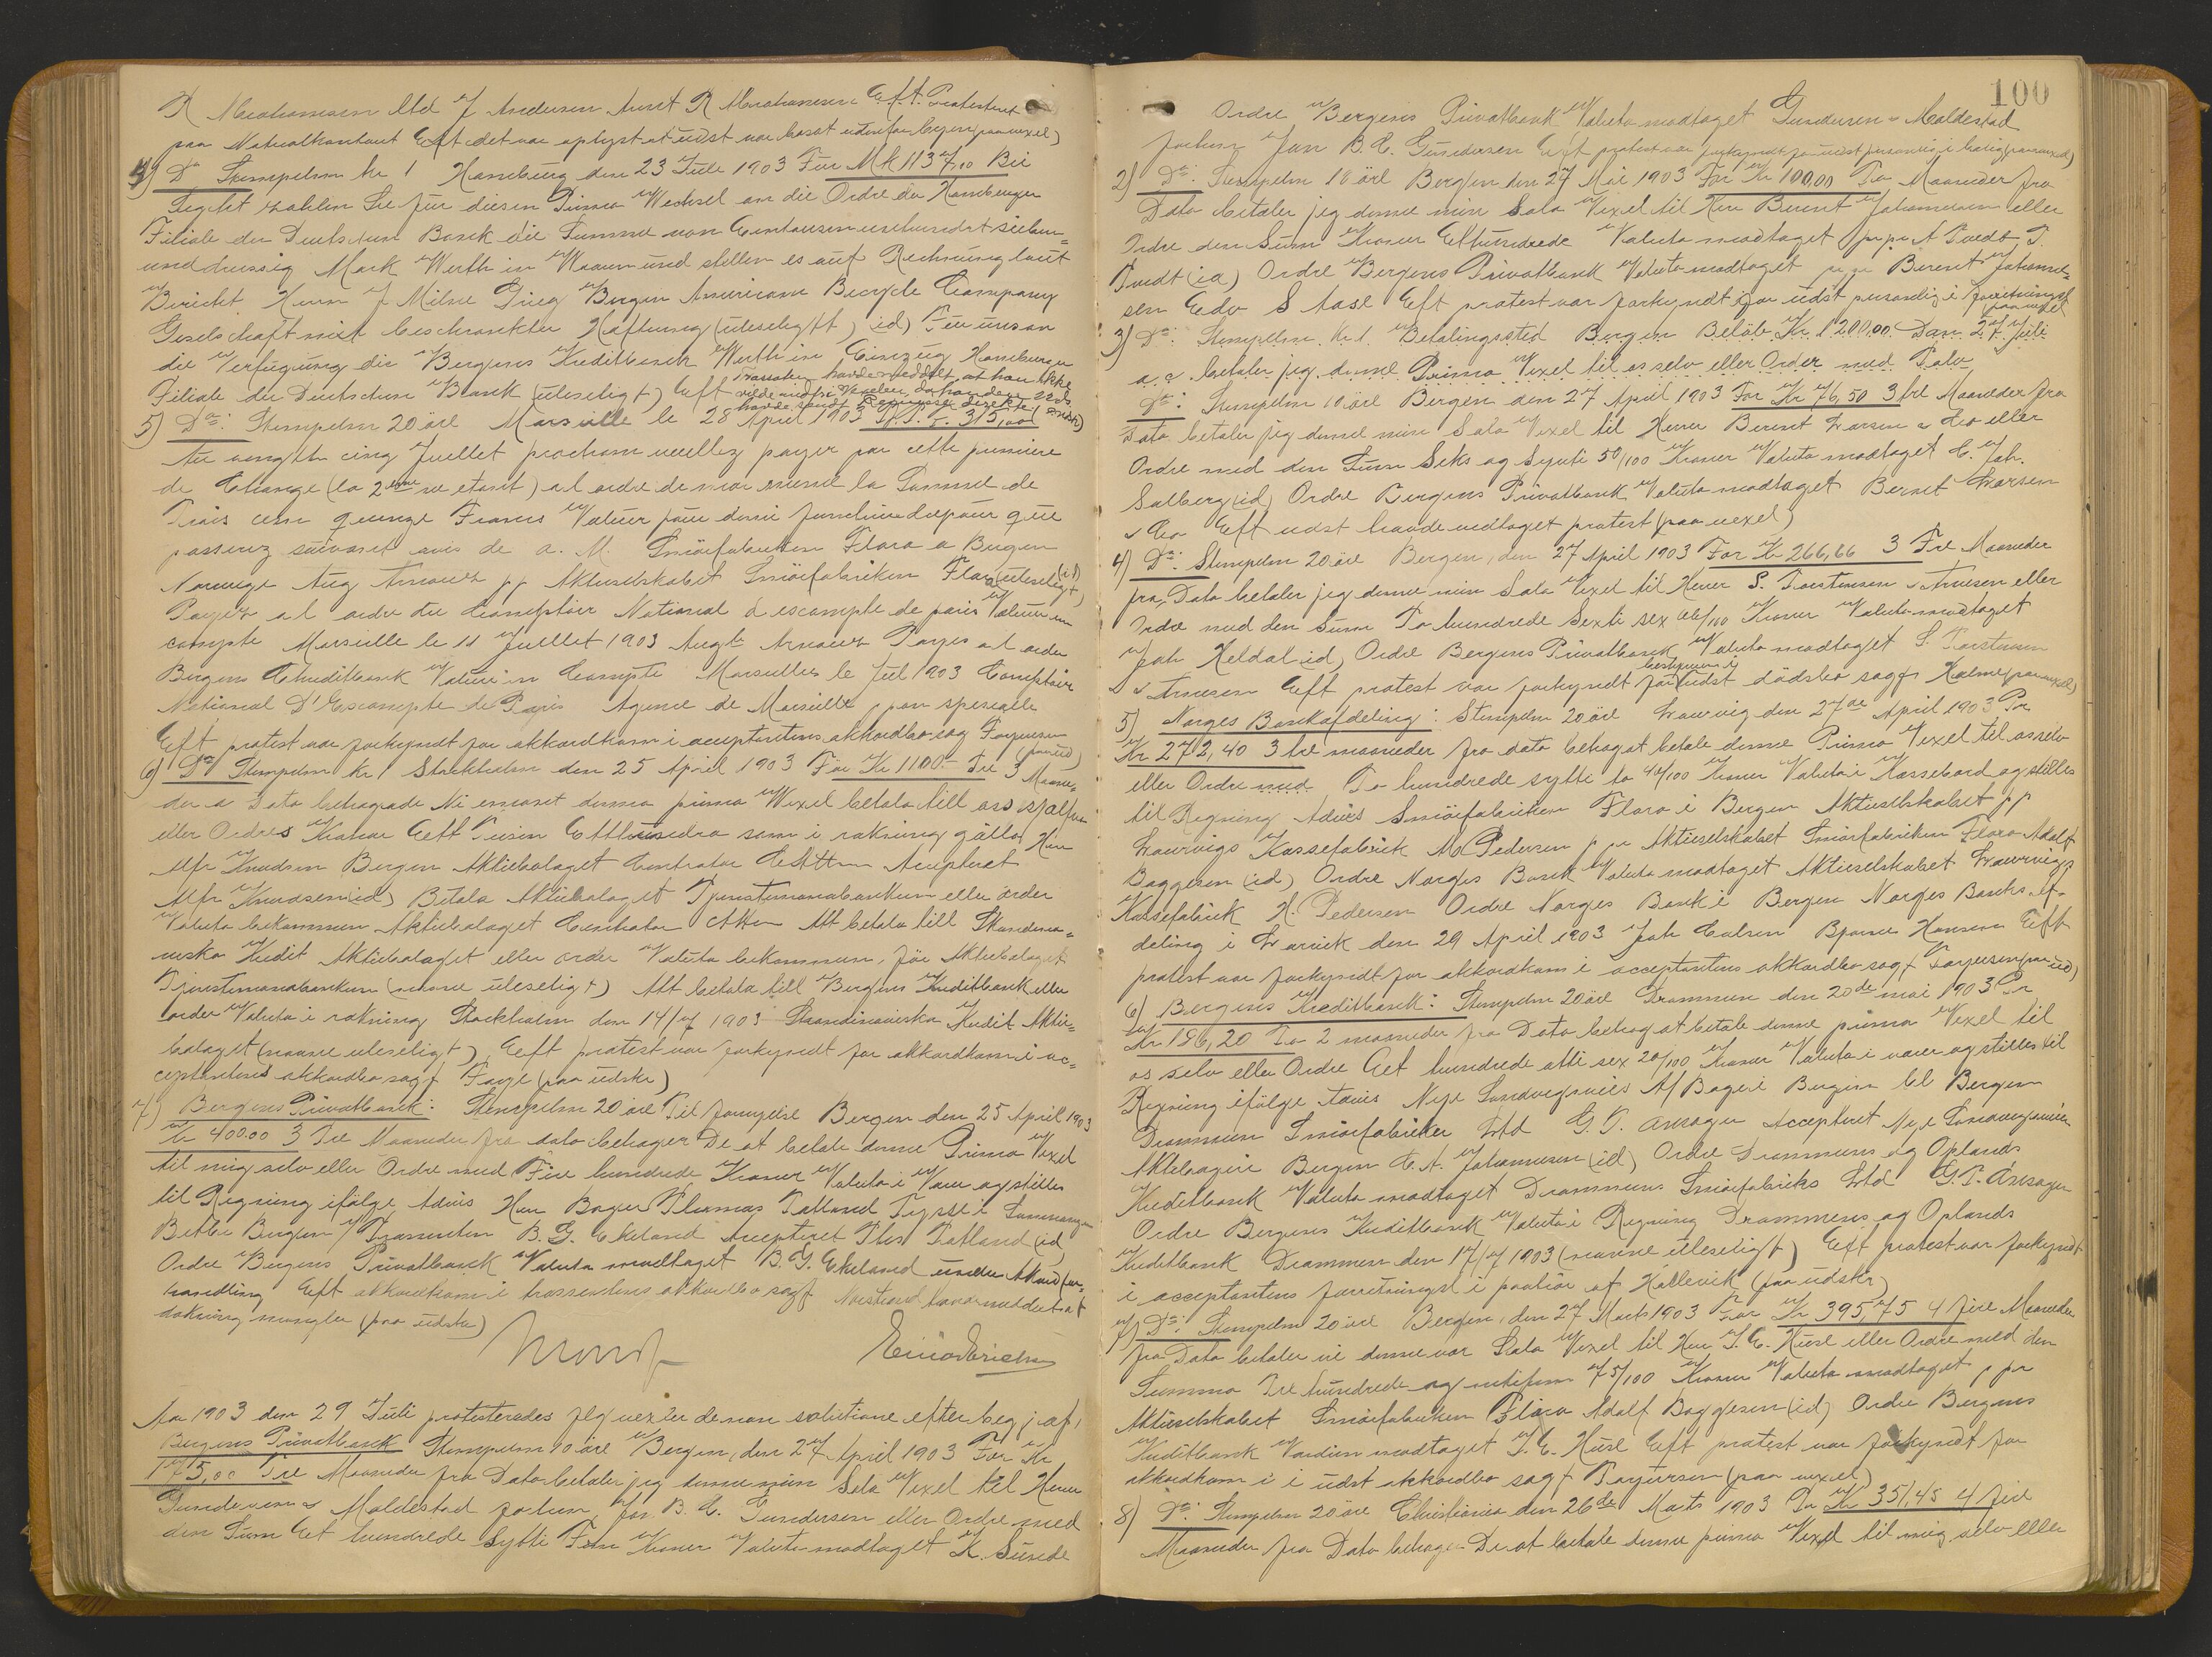 paa Notarialkontoret Eft det var oplyst at udst var bosat udenfor byen (paa vexel)
4) Do Stempelm Kr 1 Hamburg den 23 Juli 1903 Für Mk 1137,10 Bei
Sigcht zahlen Sie für diesen Prima Wechsel an die Ordre der Hamburger
Filiale der Deutschen Bank die Summe von Eintausenundhundert sieben=
unddreissig Mark Werth in Waaren und stellen es auf Rechnung laut
Bericht Herrn J Milne Grieg Bergen American Becycle Company
Geselschaft mit beschrankter Haftung (uleseligt) id) Für unsan
die Verfügung die Bergens Kreditbank Werth in Einzug Hamburger
Filiale der Deutschen Bank (uleseligt) Eft Trassaten havde meddelt at han ikke
5) Do: Stempelm 20 öre Marseille le 28 April 1903 B.P.F. 315,00
Au vingth cinq Juellet prochain veuillez payer par cette premiere
de Change (la 2eme ne etant) a l ordre de moi meme la Somme de
Trois cens quenze Francs Valeur que
passerez suivant avis de a. M. Smörfabriken Flora a Bergen
Norwege Aug Arnaux pp Aktieselskabet Smörfabriken Flora (uleseligt) (id)
Payez a l ordre du Comptoir National d escompte de paris Valeur en
compte Marseille le 11 Juellet 1903 Augte Arnaux Payes a l ordre
Bergens Creditbank Valeur in Compte Marseilles le Juli 1903 Comptoir
National D'Escompte de Paris Agence de Marseille, pon spesialle
Eft protest var forkyndt for akkordkom i acceptantens akkordbo sagf Jorgensen
6) Do Stempelm Kr 1 Stockholm den 25 April 1903 För Kr 1100- Tre 3 Maane=
der a Dato behagade Ni emot denna prima Wexel betala till oss sjelfva
eller Ordres Kronor Eett Tusen Etthundra som i rakning gälla Herr
Alfr Knudsen Bergen Aktiebolaget Centrator Acepteret
Alfr Knudsen (id) Betala Aktiebolaget Tjenstemanabanken eller order
Valuta bekommen Aktiebolaget Centrator Att betala till Skandina=
viska Kredit Aktiebolaget eller order Valuta bekommen, för Aktiebolaget
Tjenstemanabanken (navne uleseligt) Att betala till Bergens Kreditbank eller
order Valuta i rakning Stockholm den 14/7 1903 Skandinaviska Kredit Aktie=
bolaget (navne uleseligt) Eeft protest var forkyndt for akkordkom i ac=
ceptantens akkordbo sagf Faye (paa udskr)
7) Bergens Privatbank: Stempelm 20 öre Til fornyelse Bergen den 25 April 1903
Kr 400.00 3 Tre Maaneder fra dato behager De at betale denne Prima Vexel
til mig selv eller Ordre med Fire hundrede Kroner Valuta i Varer og stilles
til Regning ifölge Advis Herr Bager Thomas Tatland
Bergen Trassenten B. G. Ekeland Accepteret Ths Tatland (id)
Ordre Bergens Privatbank Valuta modtaget B. G. Ekeland under Akkordfor=
handling Eft akkordkom i trassentens akkordbo sagf Norstrand havde meddelt at
dækning mangler (paa udskr)
Aar 1903 den 29 Juli protesteredes flg vexler de non solutione efter begj af:
Bergens Privatbank Stempelm 10 öre Bergen, den 27 April 1903 For Kr
175,00 Tre Maaneder fra Dato betaler jeg denne min Sola Vexel til Herrer
Gundersen & Maldestad forhen Jan B. C. Gundersen eller Ordre med
den Sum Et hundrede Sytti Fem Kroner Valuta modtaget K. Sunde
100
Ordre Bergens Privatbank Valuta modtaget Gundersen & Maldestad
forhen Jan B. C. Gundersen Eft protest var forkyndt for udst personlig i bolig (paa vexel)
2) Do: Stempelm 10 öre Bergen den 27 Mai 1903 For Kr 100,00 To Maaneder fra
Dato betaler jeg denne min Sola Vexel til Herr Berent Johannesen eller
Ordre den Sum Kroner Ethundrede Valuta modtaget pr pr A Tvedt T.
Tvedt (id) Ordre Bergens Privatbank Valuta modtaget pr pr Berent Johannes=
sen Edv S Aase Eft protest var forkyndt for udst personlig i forretningsl
3) Do: Stempelm Kr 1. Betalingssted Bergen Belöb Kr 1200,00 Den 27 Juli
a. c. betaler jeg denne Prima Vexel til os selv eller Order med Tolv
Do: Stempelm 10 öre Bergen den 27 April 1903 For Kr 76,50 3 tre Maaneder fra
Dato betaler jeg denne min Sola Vexel til Herrer Berent Larsen & Co eller
Ordre med den Sum Seks og Sytti 50/100 Kroner Valuta modtaget C. Joh.
Salberg (id) Ordre Bergens Privatbank Valuta modtaget Bernt Larsen
& Co Eft udst havde vedtaget protest (paa vexel)
4) Do: Stempelm 20 öre Bergen, den 27 April 1903 For Kr 266,66 3 Tre Maaneder
fra Dato betaler jeg denne min Sola Vexel til Herrer S. Torstensen & Arnesen eller
Ordre med den Sum To hundrede Sexti sex 66/100 Kroner Valuta modtaget
Joh Heldal id) Ordre Bergens Privatbank Valuta modtaget S. Torstensen
& Arnesen Eft protest var forkyndt for bestyreren i udst dödsbo sagf Kalme (paa vexel)
5) Norges Bankafdeling: Stempelm 20 öre Laurvig den 27de April 1903 Pr
Kr 272,40 3 tre maaneder fra dato behagat betale denne Prima Vexel til osselv
eller Ordre med To hundrede sytti to 40/100 Kroner Valuta i Kassebord og stilles
til Regning Advis Smörfabriken Flora i Bergen Aktieselskabet pp
Laurvigs Kassefabrik M Pedersen p pr Aktieselskabet Smörfabriken Flora Adolf
Baggesen (id) Ordre Norges Bank Valuta modtaget Aktieselskabet Laurvigs
Kassefabrik H. Pedersen Ordre Norges Bank i Bergen Norges Banks Af=
deling i Larvik den 29 April 1903 Joh Carlsen Bjarne Hansen Eft
protest var forkyndt for akkordkom i acceptantens akkordbo sagf Jorgensen (paa ud)
6) Bergens Kreditbank: Stempelm 20 öre Drammen den 20de mai 1903 Pr
Kr 186,20 To 2 maaneder fra Dato behag at betale denne prima Vexel til
os selv eller Ordre Eet hundrede otti sex 20/100 Kroner Valuta i varer og stilles til
Regning ifölge Advis Nye Sandvegsveiens A/ Bageri Bergen til Bergen
Drammen Smörfabriker Ltd G. T. Ansager Accepteret Nye Sandvegsveien
Aktiebageri Bergen C. A. Johannesen (id) Ordre Drammens og Oplands
Kreditbank Valuta modtaget Drammens Smörfabriks Ltd G. T. Ansager
Ordre Bergens Kreditbank Valuta i Regning Drammens og Oplands
Kreditbank Drammen den 17/7 1903 (navne uleseligt) Eft protest var forkyndt
i acceptantens forretningsl i paahör af Hallevik (paa udskr)
7) Do: Stempelm 20 öre Bergen, den 27 Marts 1903 For Kr 395,75 4 fire Maaneder
fra Dato betaler vi denne vor Sola Vexel til Herr J. E. Huse eller Ordre med den
Summa Tre hundrede og nitifem 75/100 Kroner Valuta modtaget p pr
Aktieselskabet Smörfabriken Flora Adolf Baggesen (id) Ordre Bergens
Kreditbank Verdien modtaget J. E. Huse Eft protest var forkyndt for
akkordkom i i udst akkordbo sagf Jorgensen (paa vexel)
8) Do: Stempelm 20 öre Christiania den 26de Marts 1903 Pr Kr 351,45 4 fire
Maaneder fra Dato behager De at betale denne prima Vexel til mig selv eller